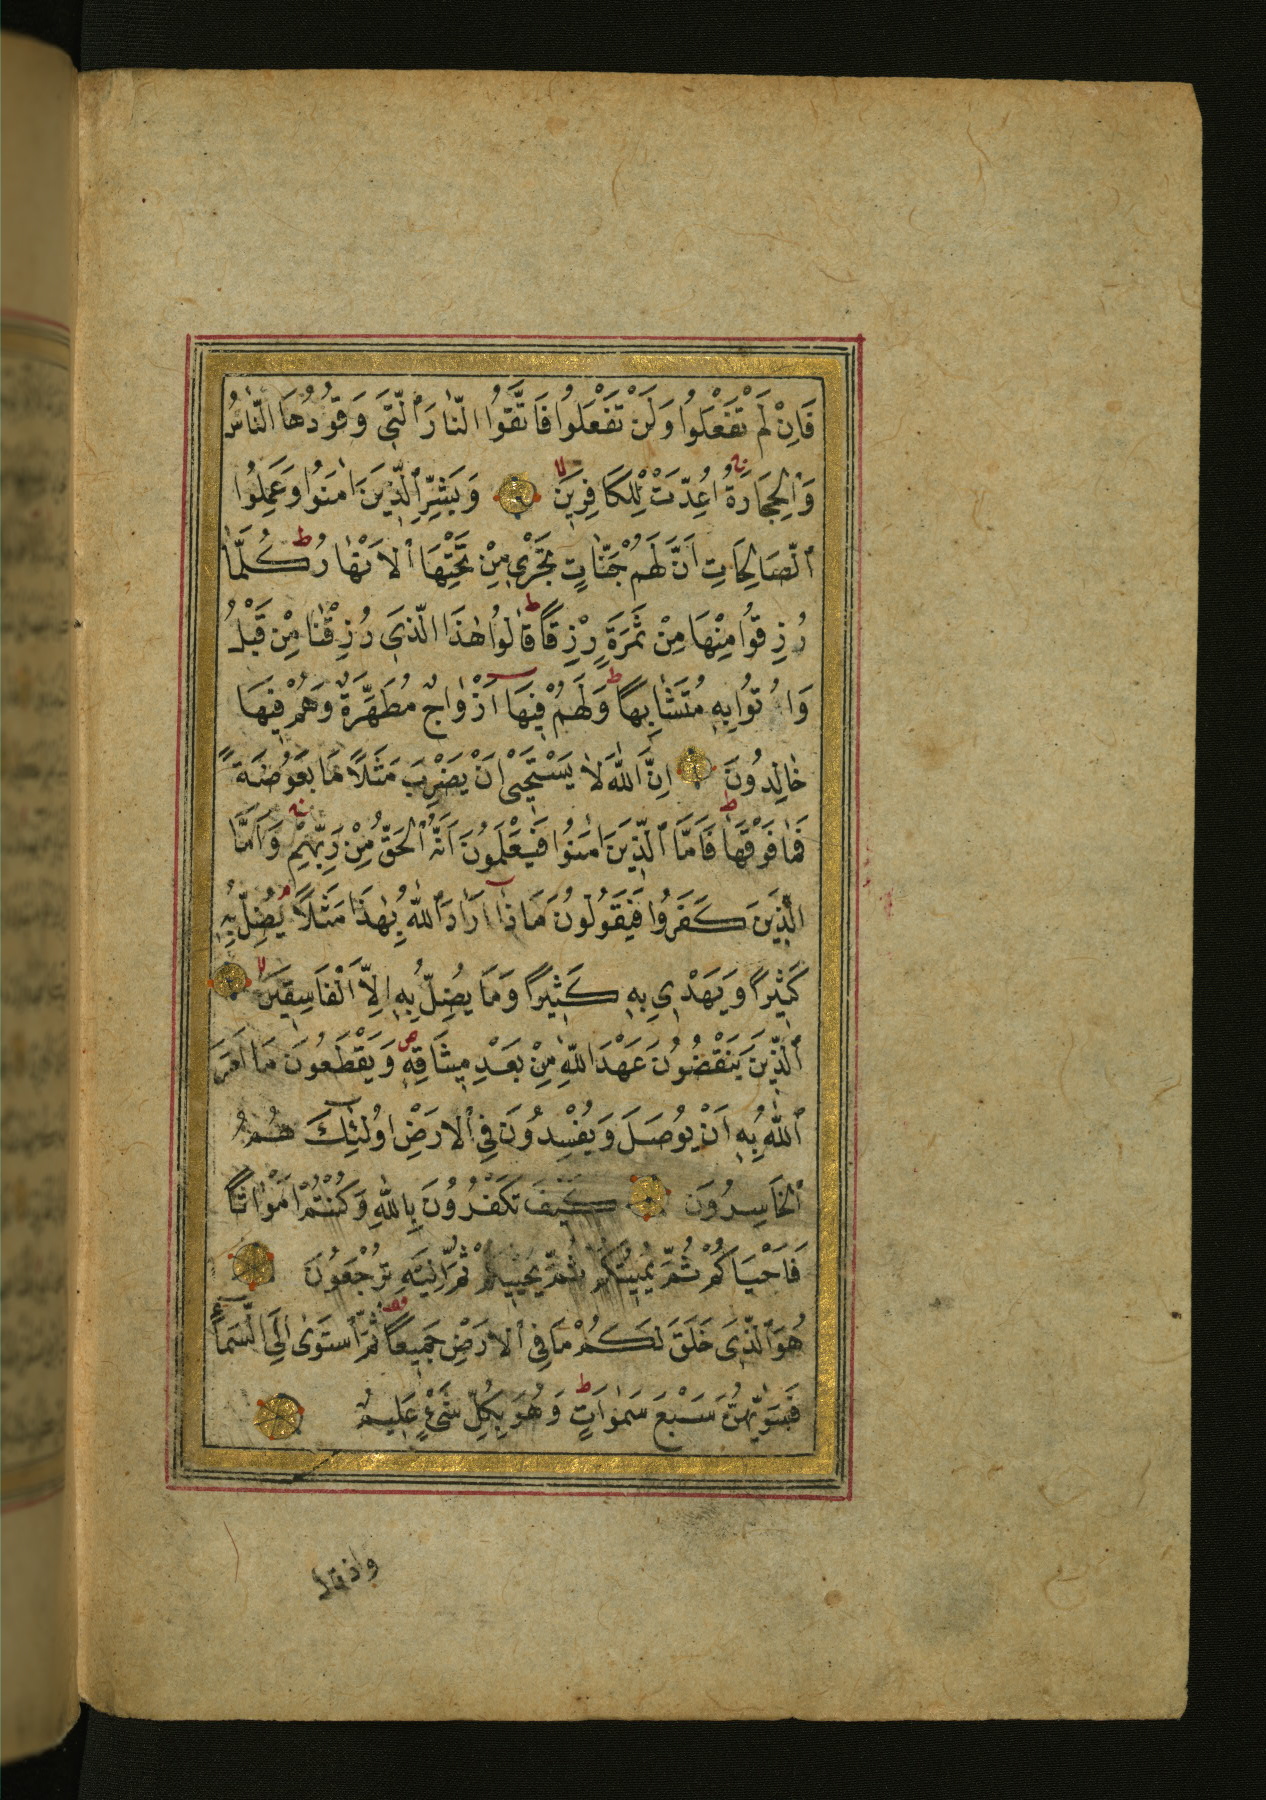 فَاِنْ لَمْ تَفْعَلُوا وَلَنْ تَفْعَلُوا فَاتَّقُوا النَّارَ ٱلَّتِي وَقُودُهَا النَّاسُ
وَٱلْحِجَارَةُ اُعِدَّتْ لِلْكَافِرِينَ وَبَشِّرِ ٱلَّذِينَ اٰمَنُوا وَعَمِلُوا
ٱلصَّالِحَاتِ اَنَّ لَهُمْ جَنَّاتٍ تَجْرِي مِنْ تَحْتِهَا ٱلْاَنْهَارُ كُلَّمَا
رُزِقُوا مِنْهَا مِنْ ثَمَرَةٍ رِزْقًا قَالُوا هٰذَا الَّذِي رُزِقْنَا مِنْ قَبْلُ
وَاُتُوا بِهِ مُتَشَابِهًا وَلَهُمْ فِيهَا اَزْوَاجٌ مُطَهَّرَةٌ وَهُمْ فِيهَا
خَالِدُونَ اِنَّ اللّٰهَ لَا يَسْتَحْيٖ اَنْ يَضْرِبَ مَثَلًا مَا بَعُوضَةً
فَمَا فَوْقَهَا فَاَمَّا ٱلَّذِينَ اٰمَنُوا فَيَعْلَمُونَ اَنَّهُ ٱلْحَقُّ مِنْ رَبِّهِمْ وَاَمَّا
الَّذِينَ كَفَرُوا فَيَقُولُونَ مَاذَا اَرَادَ ٱللّٰهُ بِهٰذَا مَثَلًا يُضِلُّ بِهِ
كَثِيرًا وَيَهْدِي بِهِ كَثِيرًا وَمَا يُضِلُّ بِهِ اِلَّا الْفَاسِقِينَ
ٱلَّذِينَ يَنْقُضُونَ عَهْدَ اللّٰهِ مِنْ بَعْدِ مِيثَاقِهِ وَيَقْطَعُونَ مَا اَمَرَ
ٱللّٰهُ بِهِ اَنْ يُوصَلَ وَيُفْسِدُونَ فِي ٱلْاَرْضِ اُولٰئِكَ هُمُ
ٱلْخَاسِرُونَ كَيْفَ تَكْفُرُونَ بِاللّٰهِ وَكُنْتُمْ اَمْوَاتًا
فَاَحْيَاكُمْ ثُمَّ يُمِيتُكُمْ ثُمَّ يُحْيِيكُمْ ثُمَّ اِلَيْهِ تُرْجَعُونَ
هُوَ ٱلَّذِي خَلَقَ لَكُمْ مَا فِي ٱلْاَرْضِ جَمِيعًا ثُمَّ ٱسْتَوٰى اِلَى السَّمَاءِ
فَسَوّٰيهُنَّ سَبْعَ سَمٰوَاتٍ وَهُوَ بِكُلِّ شَيْءٍ عَلِيمٌ
واذ قال